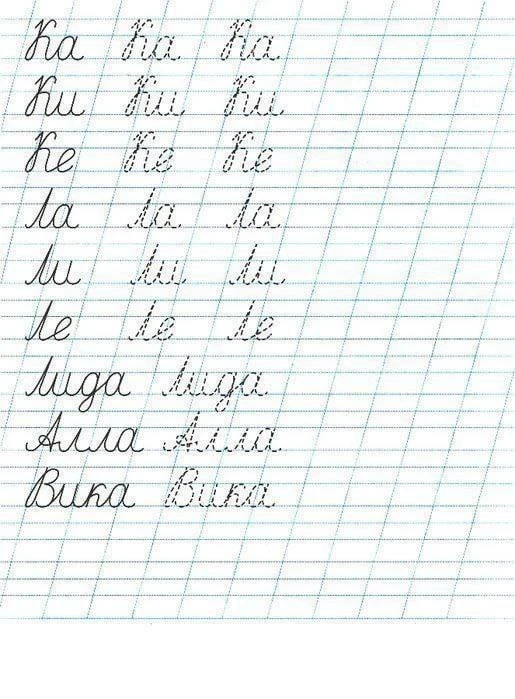 Ка Ка Ка
Ки Ки Ки
Ке Ке Ке
Ла Ла Ла
Ли Ли Ли
Ле Ле Ле
Лида Лида
Алла Алла
Вика Вика